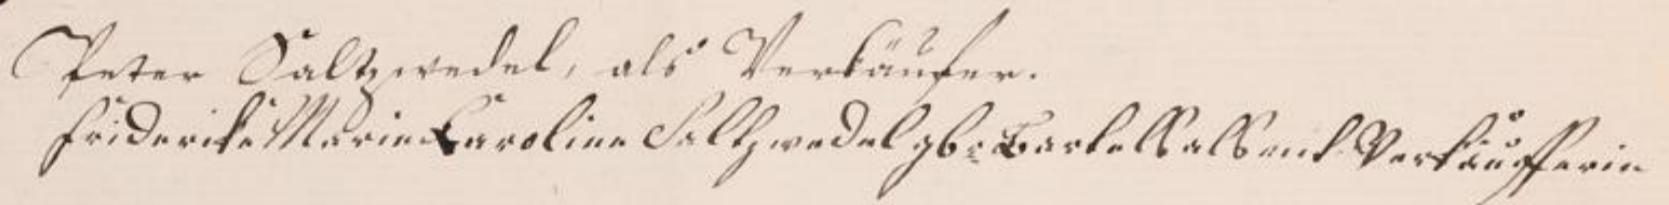 Peter Saltzwedel, als Verkäufer.
Friderike Marie Caroline Saltzwedel gbr Bartels als mit Verkäufferin